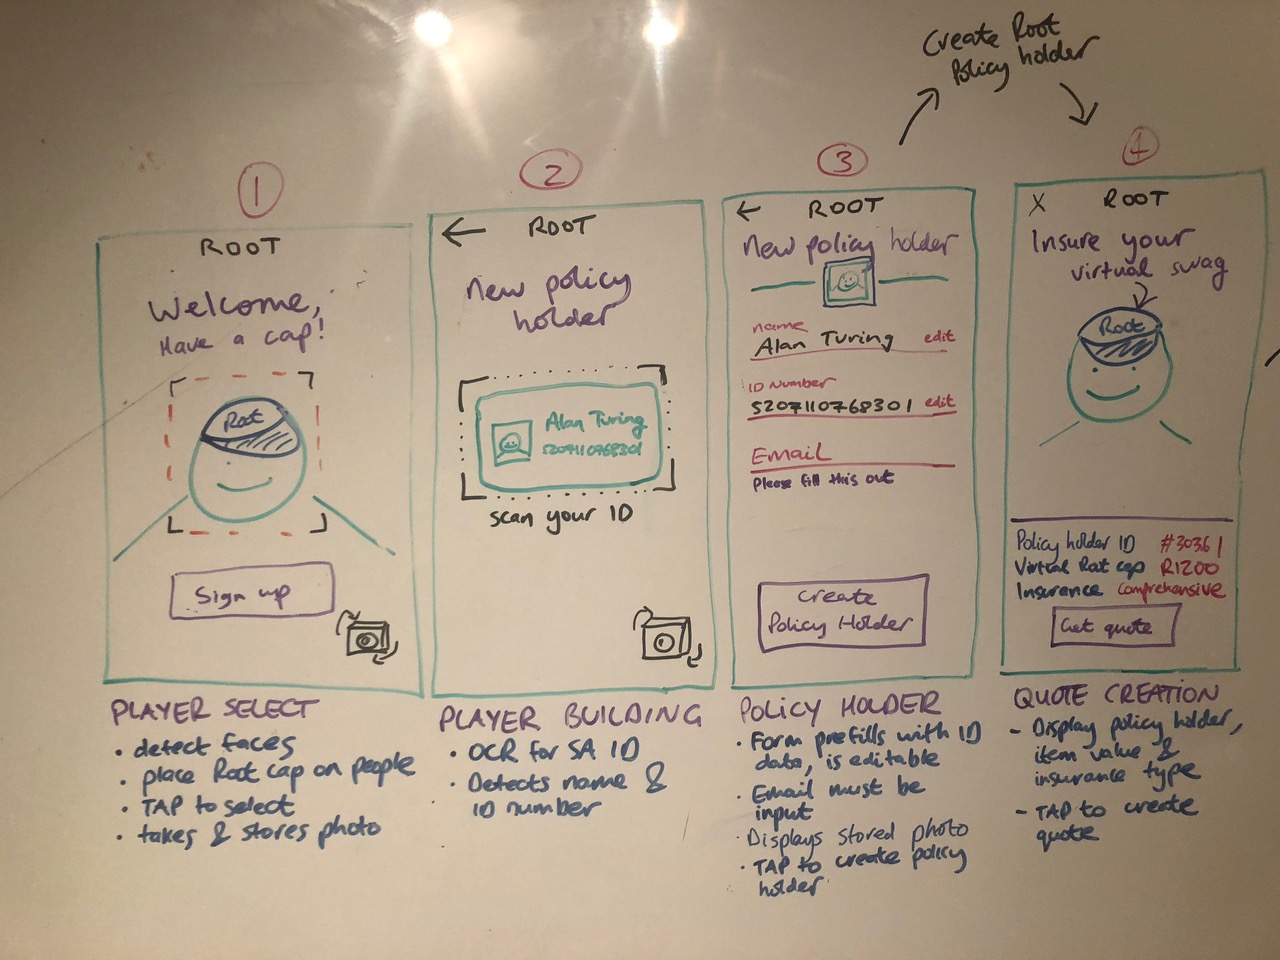 Create Root
Policy holder
1
ROOT
Welcome,
Have a cap!
Root
Sign up
PLAYER SELECT
• detect faces
• place Root cap on people
• TAP to select
• takes & stores photo
2
←
ROOT
New policy
holder
Alan Turing
5207110768301
scan your ID
PLAYER BUILDING
• OCR for SA ID
• Detects name &
ID number
3
← ROOT
New policy holder
name
Alan Turing edit
ID Number
5207110768301 edit
Email
Please fill this out
Create
Policy Holder
POLICY HOLDER
• Form prefills with ID
data, is editable
• Email must be
input
• Displays stored photo
• TAP to create policy
holder
4
X ROOT
Insure your
virtual swag
Root
Policy holder ID #30361
Virtual Root cap R1200
Insurance comprehensive
Get quote
QUOTE CREATION
- Display policy holder,
item value &
insurance type
- TAP to create
quote